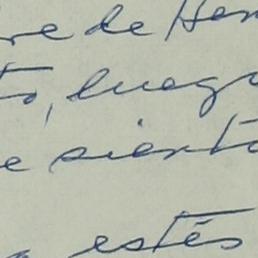 re de Hen
to, luego
e siento
estés